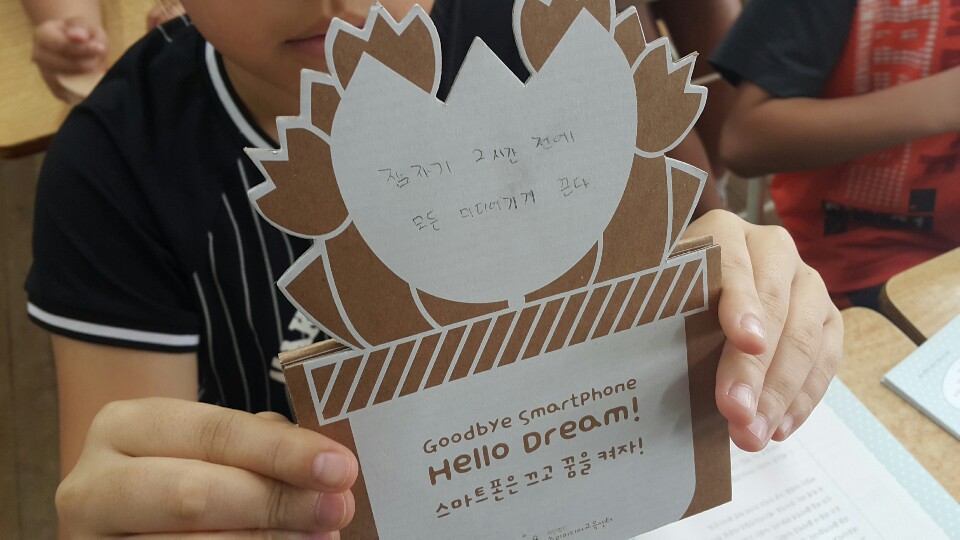 잠자기 2시간 전에
모든 미디어기게 끈다
Goodbye Smartphone
Hello Dream!
스마트폰은 끄고 꿈을 켜자!